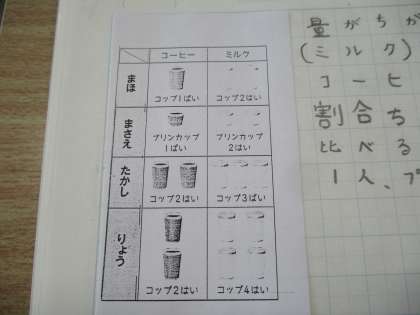 コーヒー ミルク
まほ
コップ1ぱい コップ2はい
まさえ
プリンカップ1ぱい プリンカップ2はい
たかし
コップ2はい コップ3ばい
りょう
コップ2はい コップ4はい
量がちが
(ミルク)
コーヒ
割合ち
比べる
1人、プ